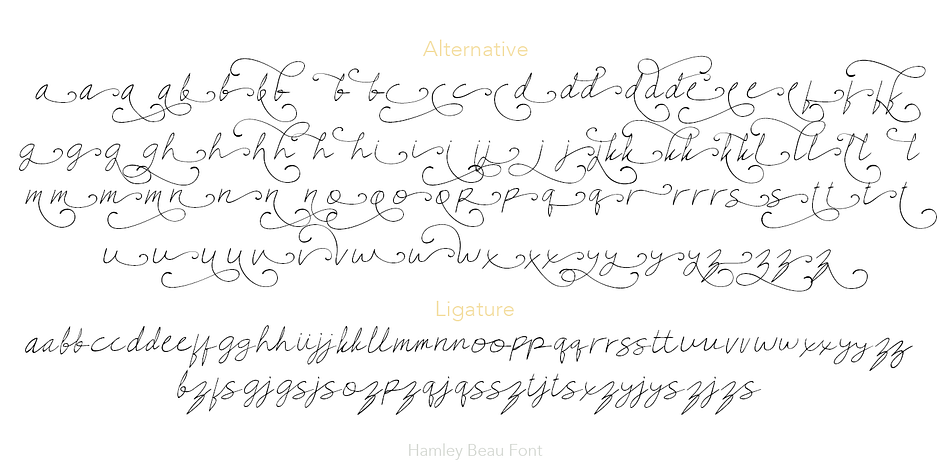 Alternative
a a a a b b b b b b c c c c d d d d d d e e e e e f f f f
g g g g h h h h h h i i i i j j j j j k k k k k k l l l l l l
m m m m m n n n n o o o o p p p q q r r r r r s s s t t t t t
u u u u u v v v v w w w w x x x y y y y y z z z z z
Ligature
aabbccddeeffgghhiijjkkllmmnnooppqqrrssttuuvvwwxxyyzz
bzfsgjgsjsozpzqjqssztjtsxzyjyszjzs
Hamley Beau Font